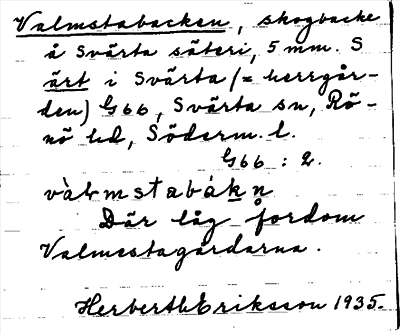 Valmstabacken, skogbacke
å Svärta säteri, 5 mm. S
ärt i Svärta (= herrgår-
den) G66, Svärta sn, Rö-
nö hd, Söderm. l.
G66 : 2.
Där låg fordom
Valmestagårdarna.
Herbert Eriksson 1935.